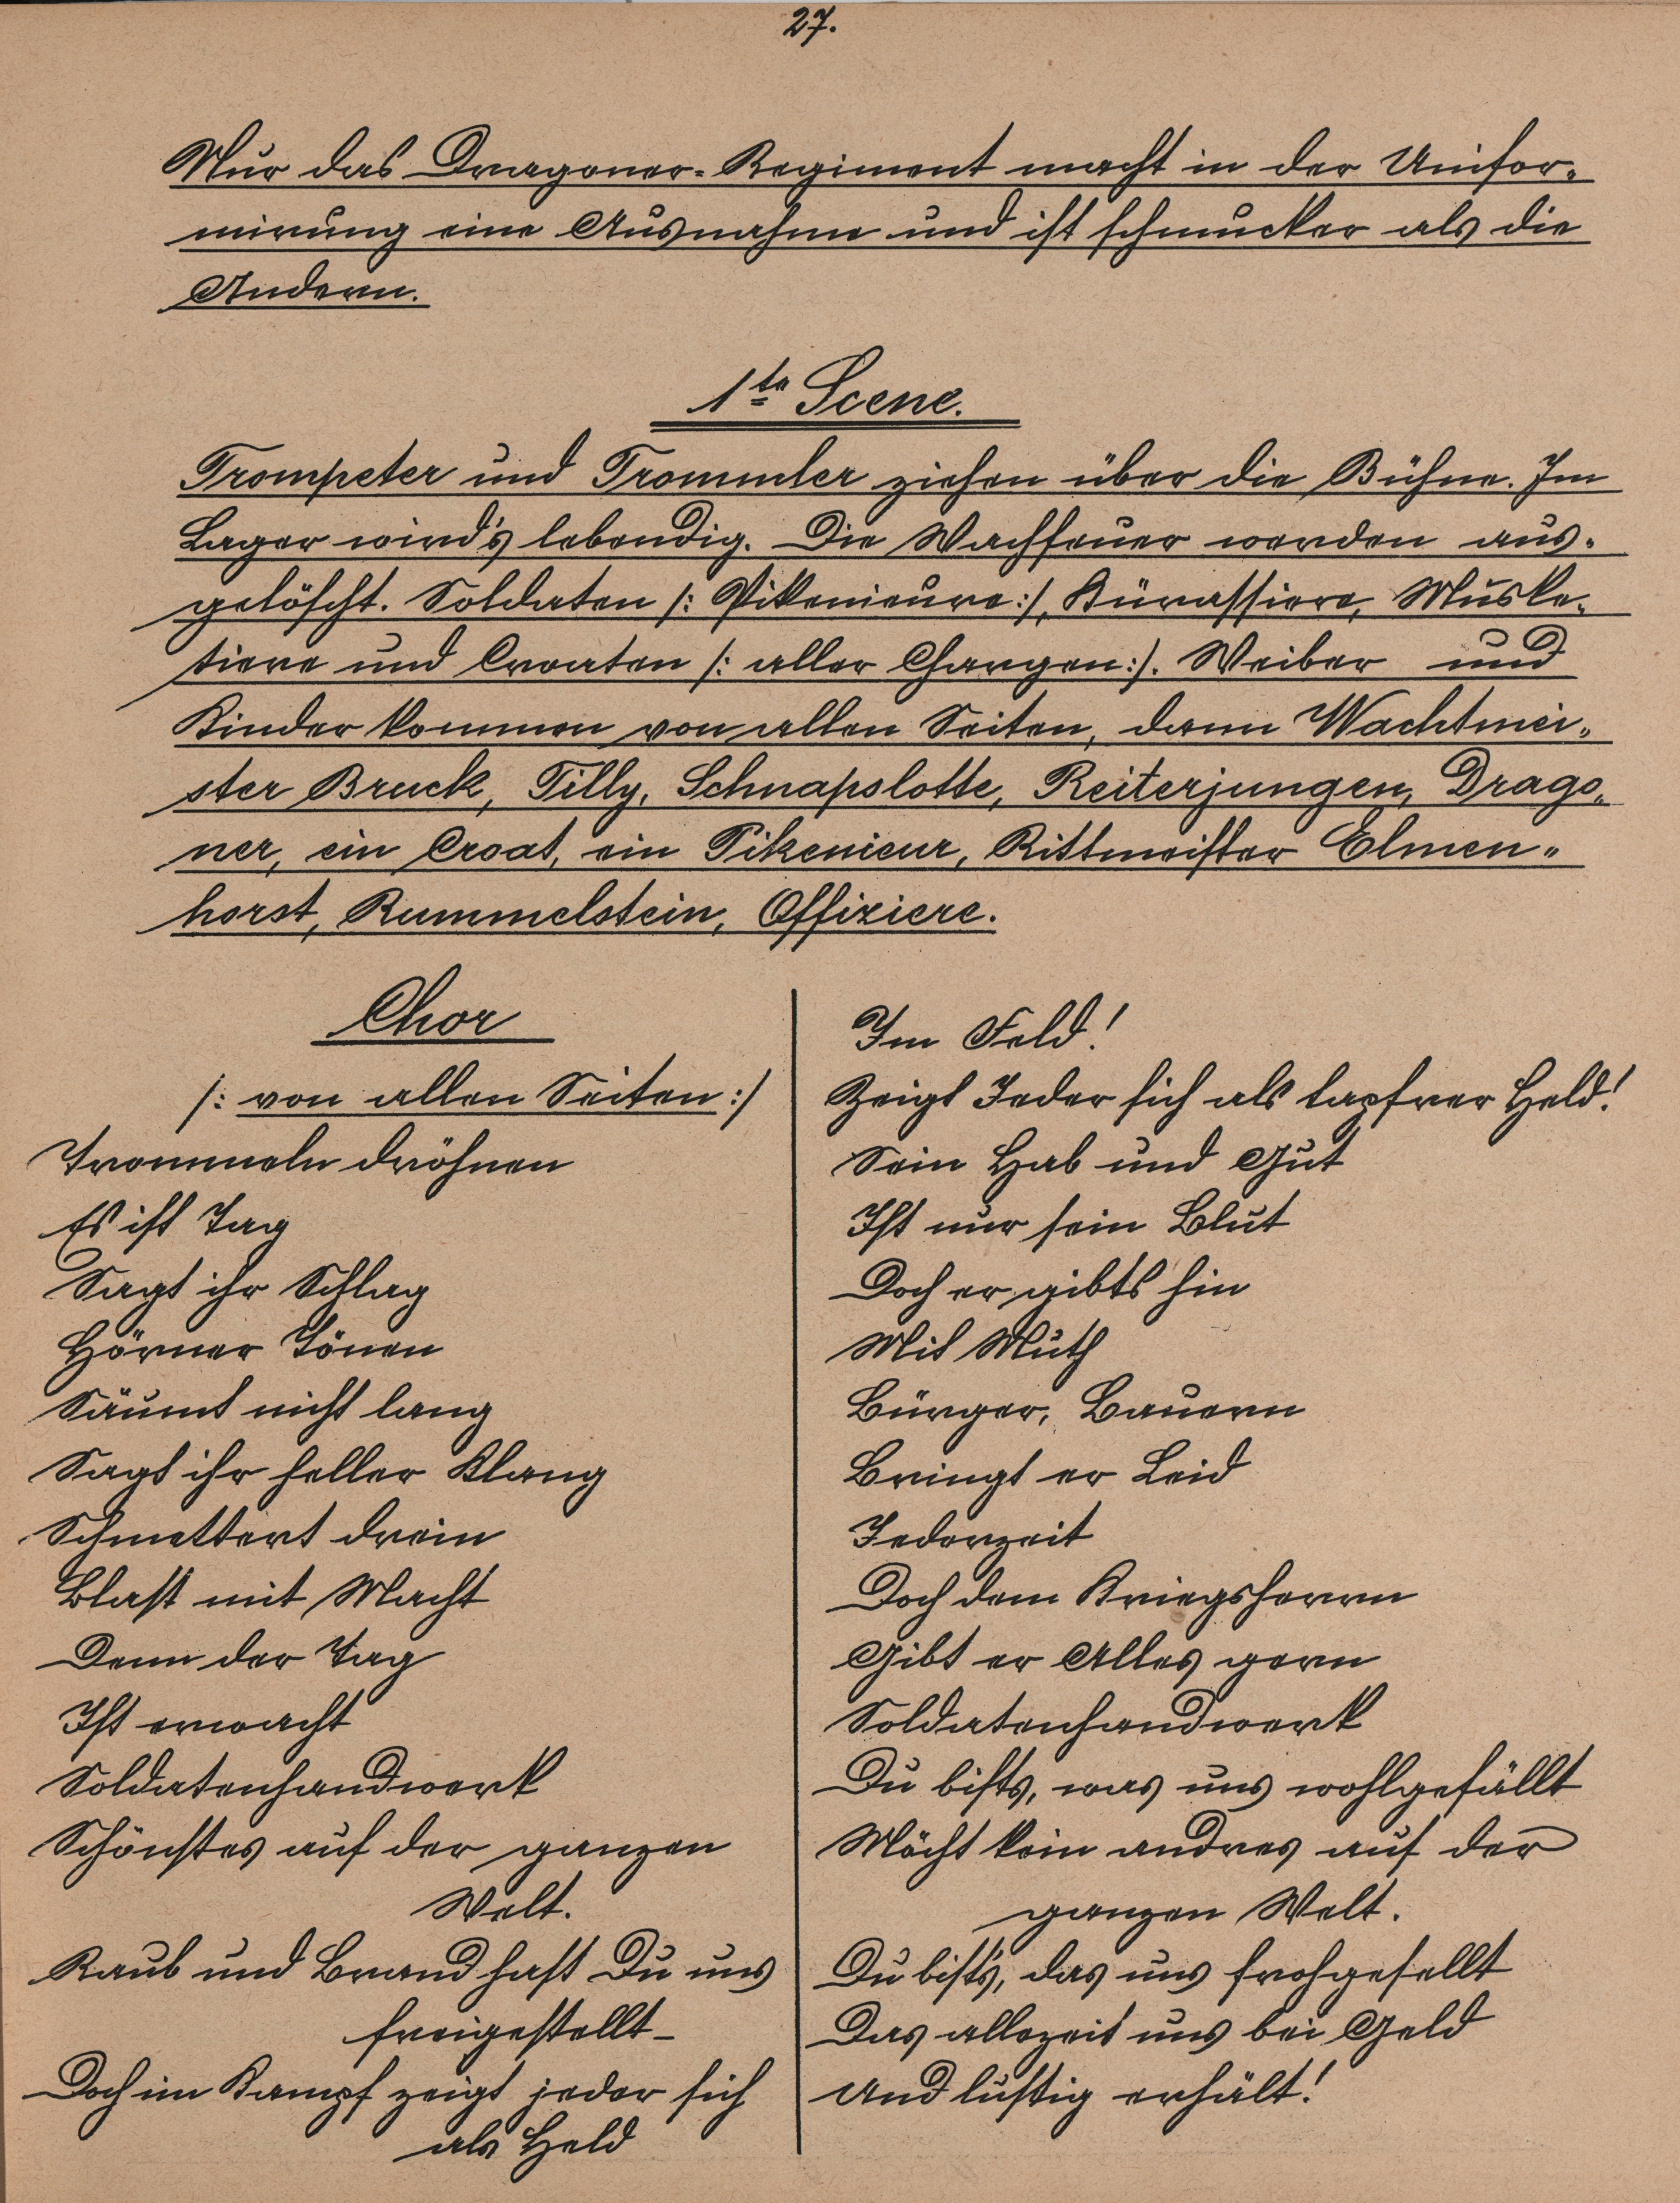 27.
Nur das Dragoner-Regiment macht in der Unifor-
mirung eine Ausnahme und ist schmucker als die
Andern.
1te Scene.
Trompeter und Trommler ziehen über die Bühne. Im
Lager wird's lebendig. Die Wachfeuer werden aus-
gelöscht. Soldaten /: Pikenieure :/, Kürassiere, Muske-
tiere und Croaten /: aller Chargen :/. Weiber und
Kinder kommen von allen Seiten, dann Wachtmei-
ster Bruck, Tilly, Schnapslotte, Reiterjungen, Drago-
ner, ein Croat, ein Pikenieur, Rittmeister Elmen-
horst, Rummelstein, Offiziere.
Chor
/: von allen Seiten :/
Trommeln dröhnen
Es ist Tag
Sagt ihr Schlag
Hörner Tönen
Säumt nicht lang
Sagt ihr heller Klang
Schmettert drein
Blast mit Macht
Denn der Tag
Ist erwacht
Soldatenhandwerk
Schönstes auf der ganzen
Welt.
Raub und Brand hast Du uns
freigestellt_
Doch im Kampf zeigt jeder sich
als Held
Im Feld!
Zeigt Jeder sich als tapfrer Held!
Sein Hab und Gut
Ist nur sein Blut
Doch er gibts hin
Mit Muth
Bürger, Bauern
Bringt er Leid
Jederzeit
Doch dem Kriegsherrn
Gibt er Alles gern
Soldatenhandwerk
Du bists, was uns wohlgefällt
Möcht kein andres auf der
ganzen Welt.
Du bist's, das uns frohgesellt
Das allezeit uns bei Geld
Und lustig erhält!